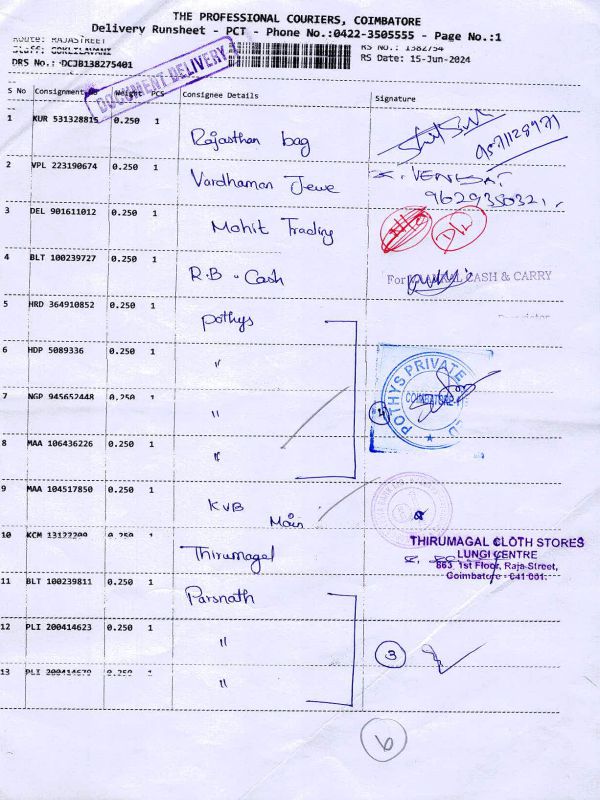 THE PROFESSIONAL COURIERS, COIMBATORE
Delivery Runsheet - PCT - Phone No.:0422-3505555 - Page No.:1
Route: RAJASTREET
RS No.: 1382754
DRS No.: DCJB138275401
RS Date: 15-Jun-2024
DOCUMENT DELIVERY
S No Consignment No Weight PCS Consignee Details Signature
1 KUR 531328815 0.250 1 Rajasthan bag
9571128971
2 VPL 223190674 0.250 1 Vardhaman Jewe
VENKAT
9629350321
3 DEL 901611012 0.250 1 Mohit Trading
D/2
4 BLT 100239727 0.250 1 R.B. Cash
CASH & CARRY
5 HRD 364910852 0.250 1 pothys
6 HDP 5089336 0.250 1 "
7 NGP 945652448 0.250 1 "
POTHYS PRIVATE
COIMBATORE-1
4
8 MAA 106436226 0.250 1 "
9 MAA 104517850 0.250 1 KVB Main
10 KCM 13122209 0.250 1 Thirumagal
THIRUMAGAL CLOTH STORES
LUNGI CENTRE
863, 1st Floor, Raja Street,
Coimbatore - 641 001.
11 BLT 100239811 0.250 1 Parsnath
12 PLI 200414623 0.250 1 "
3
13 PLI 0.250 1 "
6